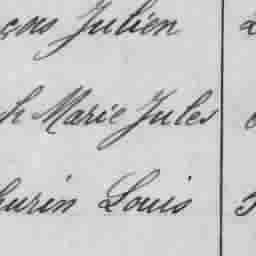 çois Julien
h Marie Jules
hurin Louis